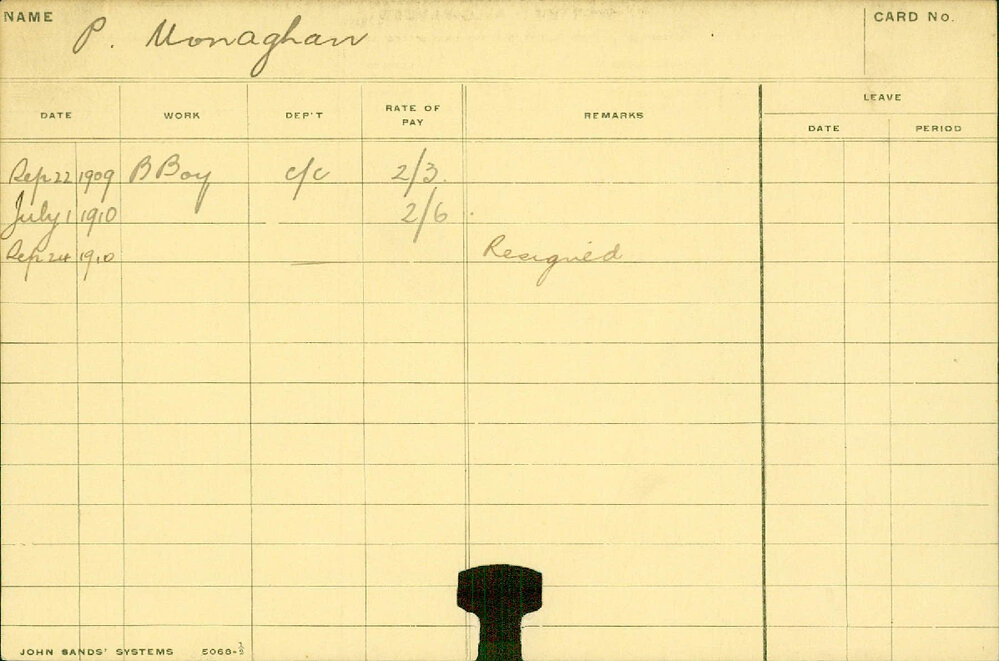 NAME P. Monaghan CARD No.
DATE WORK DEP'T RATE OF PAY REMARKS LEAVE
DATE PERIOD
Sep 22 1909 B Boy c/c 2/3.
July 1 1910 2/6.
Sep 24 1910 — Resigned
JOHN SANDS' SYSTEMS 5068-